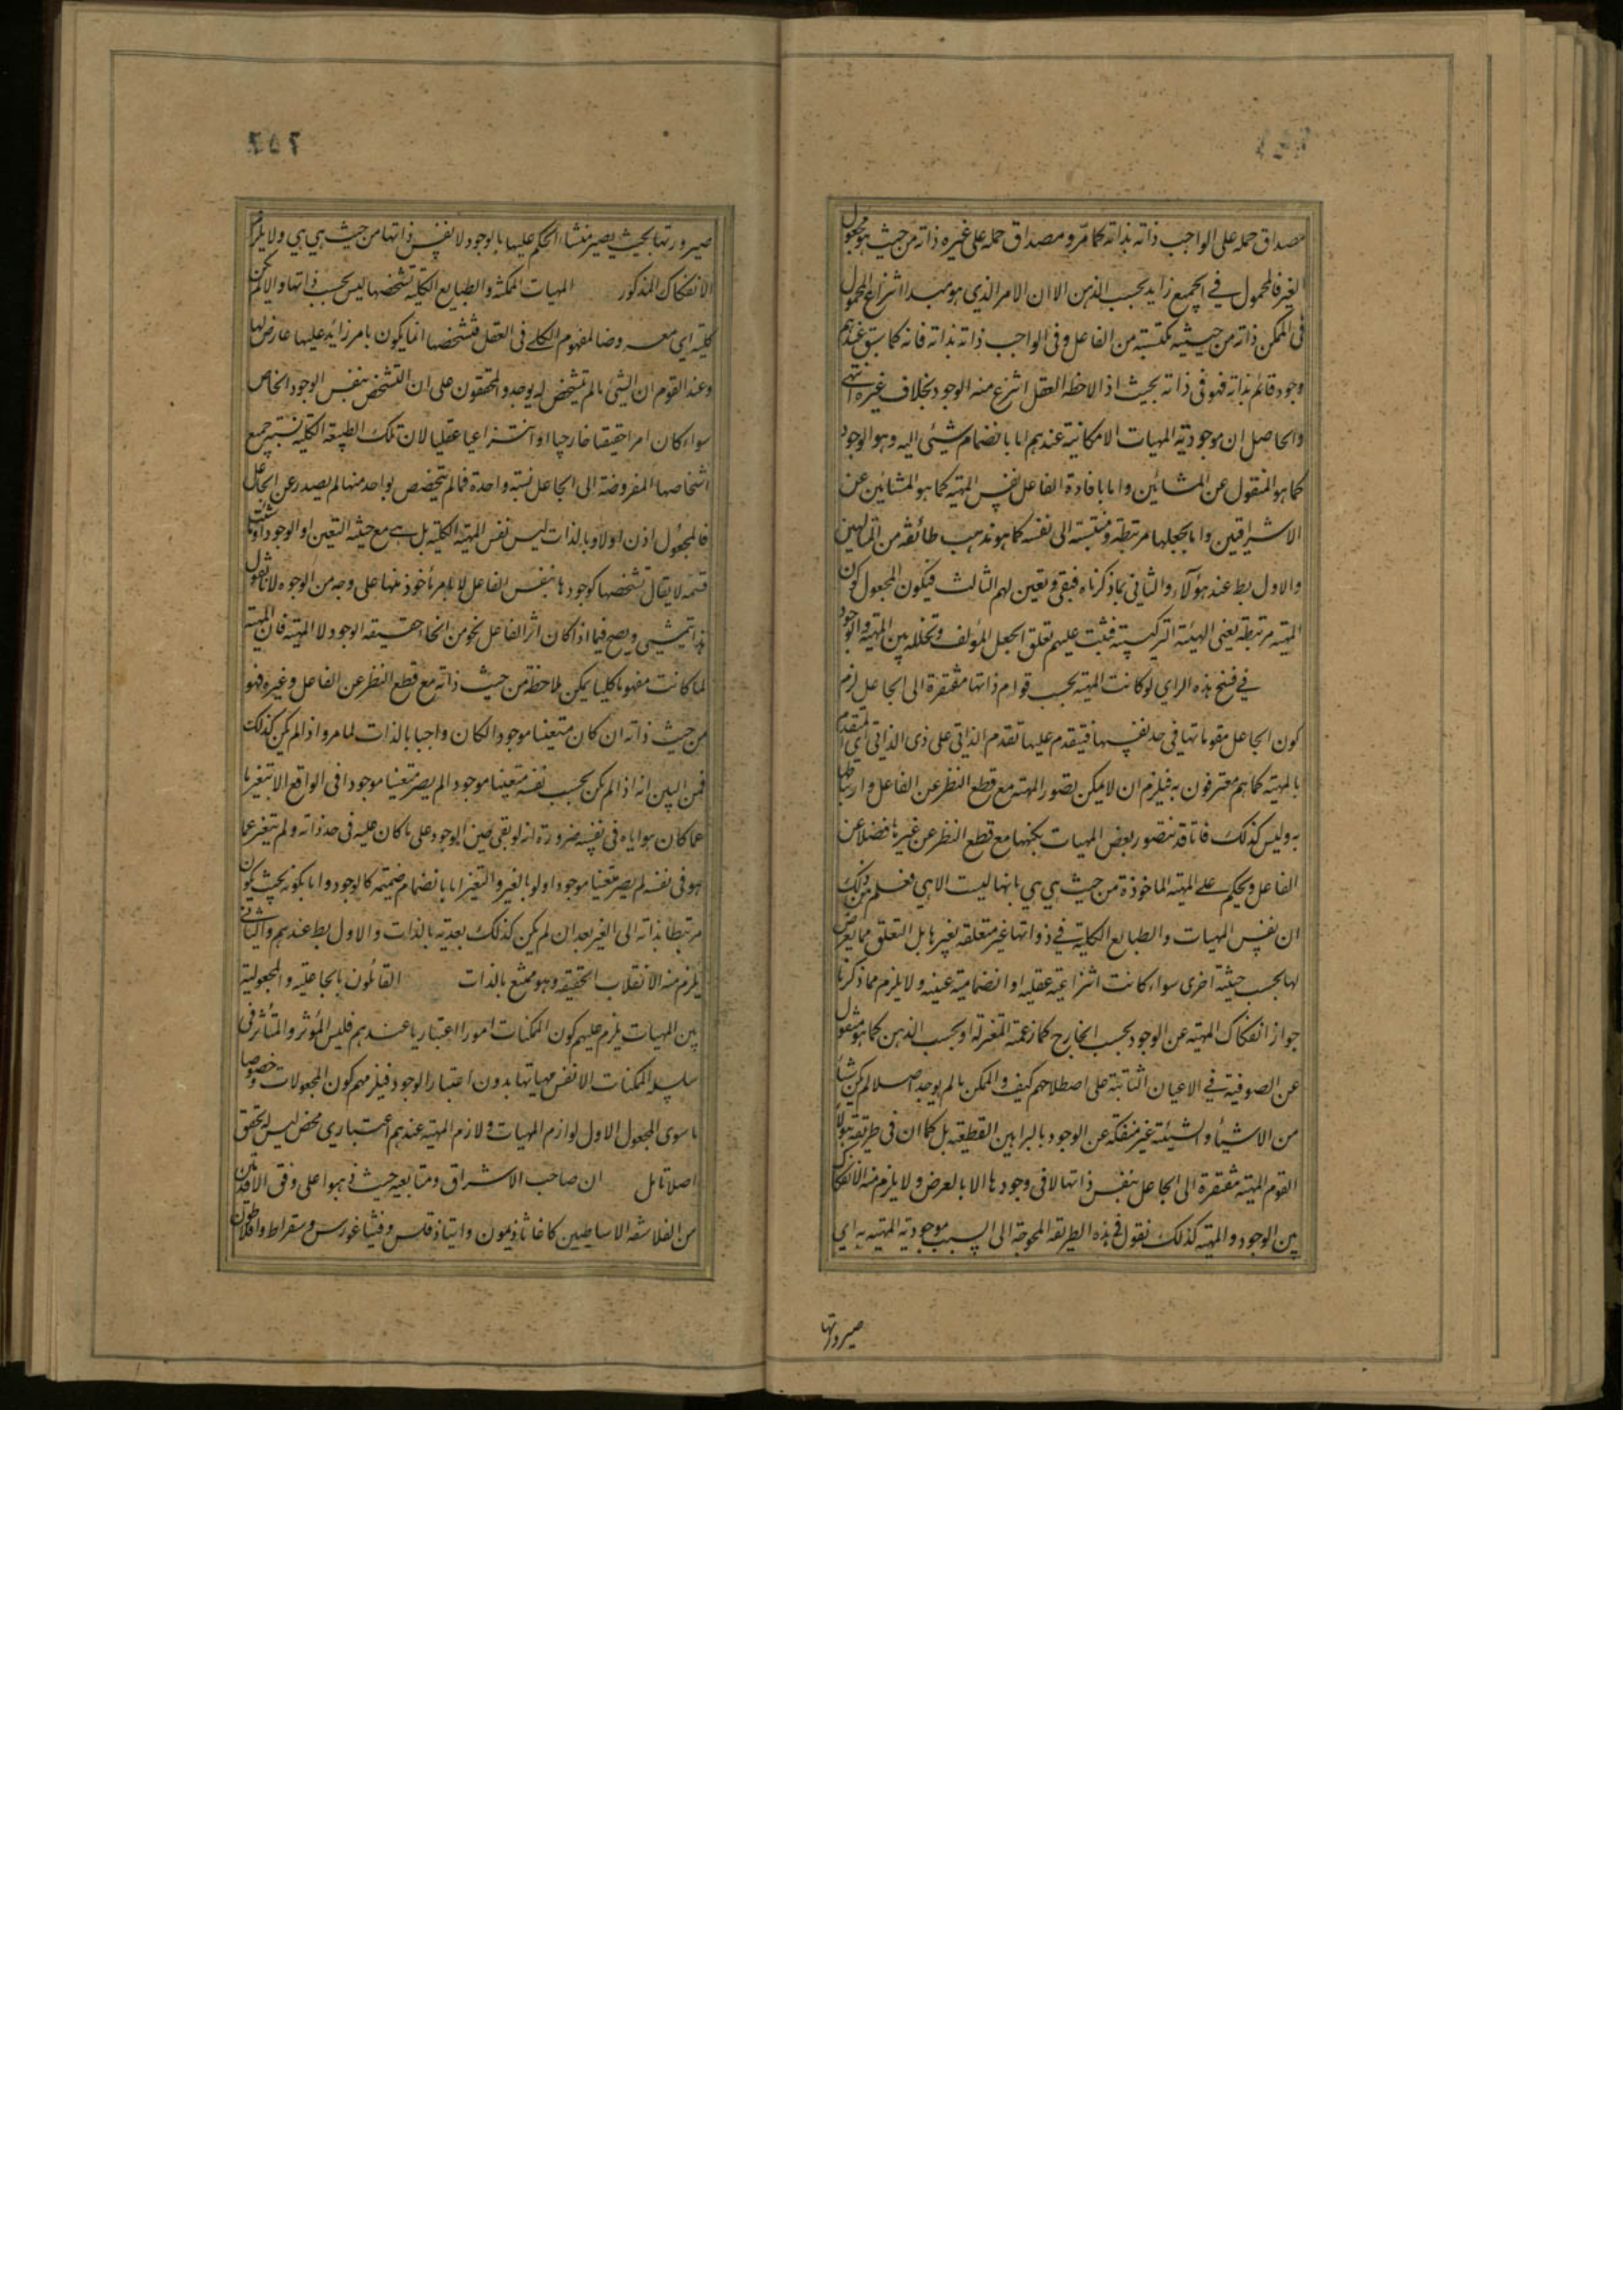 مصداق حمله على الواجب ذاته بذاته كما مر و مصداق حمله على غيره ذاته من حيث هو مجعول
الغير فالمحمول في الجميع زايد بحسب الذهن الا ان الامر الذي هو مبدا انتزاع المحمول
فى الممكن ذاته من حيثيه مكتسبته من الفاعل وفى الواجب ذاته بذاته فانه كما سبق عندهم
وجود قائم بذاته فهو فى ذاته بحيث اذا لاحظه العقل انتزع منه الوجود بخلاف غيره انتهى
والحاصل ان موجوديّة المهيات الامكانية عندهم اما بانضمام شيئى اليه وهو الوجود
كما هو المنقول عن المشائين واما بافادة الفاعل نفس المهية كما هو المشائين عن
الاشراقين واما بجعلها مرتبطة و منتسبة الى نفسه كما هو مذهب طائفه من المتالهين
والاول بط عند هؤلآء والثاني بما ذكرناه فبقى و تعين لهم الثالث فيكون المجعول كون
المهية مرتبطة يعنى الهيئة التركيبية فثبت عليهم تعلق الجعل المؤلف و تخلله بين المهية والوجود
في فسخ هذه الراي لو كانت المهية بحسب قوام ذاتها مفتقرة الى الجاعل لزم
كون الجاعل مقوما لها في حد نفسها فيتقدم عليها تقدم الذاتى على ذى الذاتى اى التقدم
بالمهية كما هم معترفون به فيلزم ان لا يمكن تصور المهية مع قطع النظر عن الفاعل و ارتباطها
به وليس كذلك فانا قد نتصور بعض المهيات بكنهها مع قطع النظر عن غيرها فضلا عن
الفاعل و يحكم على المهية الماخوذة من حيث هي هي بانها ليست الا هي فعلم من ذلك
ان نفس المهيات و الطبايع الكلية في ذواتها غير متعلقه بغيرها بل التعلق مما يعرض
لها بحسب حيثية اخرى سواء كانت انتزاعية عقليه او انضمامية عينيه ولا يلزم مما ذكرنا
جواز انفكاك المهية عن الوجود بحسب الخارج كما زعمته المعتزلة او بحسب الذهن كما هو منقول
عن الصوفية في الاعيان الثابتة على اصطلاحهم كيف و الممكن ما لم يوجد اصلا لم يكن شيأ
من الاشيأ والشيئية غير منفكة عن الوجود بالبراهين القطعية بل كما ان فى طريقة هؤلاء
القوم المهية مفتقرة الى الجاعل بنفس ذاتها لا فى وجودها الا بالعرض ولا يلزم منه الانفكاك
بين الوجود و المهية كذلك نقول في هذه الطريقه المحوجة الى السبب موجودية المهية به اى
صيرورتها
صيرورتها بحيث يصير منشاء الحكم عليها بالوجود لا نفس ذاتها من حيث هي هي ولا يلزم
الانفكاك المذكور المهيات الممكنة والطبايع الكلية تشخصها ليس بحسب ذاتها والا لم يكن
كلية اي معروضا لمفهوم الكلي فى العقل فتشخصها انما يكون بامر زائد عليها عارض لها
وعند القوم ان الشيئ ما لم يتشخص لم يوجد والمحققون على ان التشخص بنفس الوجود الخاص
سواء كان امرا حقيقيا خارجيا او انتزاعيا عقليا لان تلك الطبيعة الكلية نسبة جميع
اشخاصها المفروضة الى الجاعل نسبة واحدة فما لم يتخصص بواحد منها لم يصدر عن الجاعل
فالمجعول اذن اولا و بالذات ليس نفس المهية الكلية بل هي مع حيثية التعين او الوجود او ما شئت
فسمه لا يقال تشخصها كوجودها بنفس الفاعل لا بامر مأخوذ منها على وجه من الوجوه لانا نقول
هذا يتمشى و يصح فيما اذا كان اثر الفاعل نحو من انحاء حقيقه الوجود لا المهية فان المهية
لما كانت مفهوما كليا يمكن ملاحظة من حيث ذاته مع قطع النظر عن الفاعل وغيره فهو
من حيث ذاته ان كان متعينا موجودا لكان واجبا بالذات لما مر و اذا لم يكن كذلك
فمن البين انه اذا لم يكن بحسب نفسه متعينا موجود الم يصر متعينا موجودا فى الواقع الا بتغيرها
عما كان هو اياه فى نفسه ضرورة انه لو بقى حين الوجود على ما كان عليه فى حد ذاته ولم يتغير عما
هو فى نفسه لم يصر متعينا موجودا ولو بالغير والتغير اما بانضمام ضميمة كالوجود واما بكونه بحيث يكون
مرتبطا بذاته الى الغير بعد ان لم يكن كذلك بعدية بالذات و الاول بط عندهم والثانى
يلزم منه الانقلاب الحقيقه وهو ممتنع بالذات القائلون بالجاعلية والمجعولية
بين المهيات يلزم عليهم كون الممكنات امورا اعتباريا عندهم فليس المؤثر والمتأثر فى
سلسلة الممكنات الا نفس مهياتها بدون اعتبار الوجود فيلزمهم كون المجعولات و خصوصا
ما سوى المجعول الاول لوازم المهيات ولازم المهية عندهم اعتباري محض ليس له تحقق
اصلا تامل ان صاحب الاشراق و متابعيه حيث ذهبوا على وفق الاقدمين
من الفلاسفه الاساطين كاغاثاذيمون وانباذقلس و فيثاغورس و سقراط و افلاطون